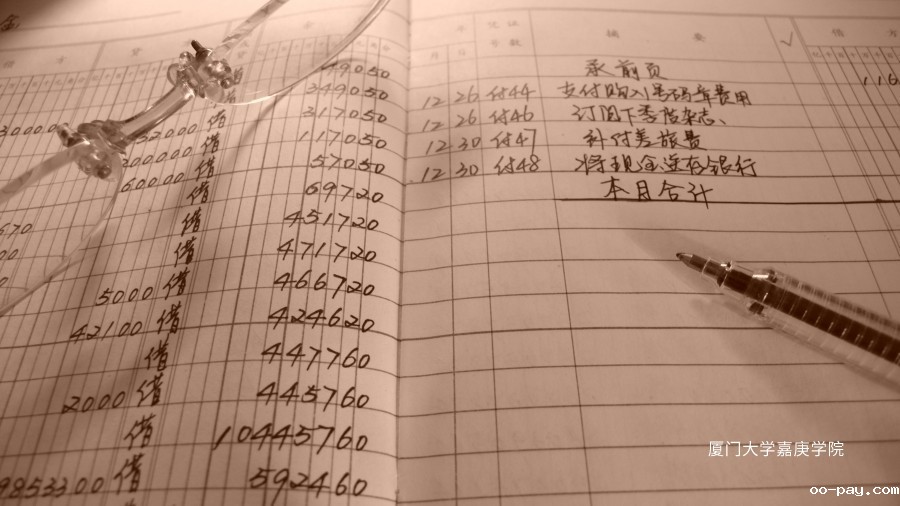 金
方 贷 金
49050
349050
32000 借 317050
200000 借 117050
60000 借 57050
借 69720
借 451720
借 471720
5000 借 466720
42100 借 424620
借 447760
2000 借 445760
借 10445760
9853300 借 592460
年 凭证 摘 要 √ 借 方
月 日 号数
承前页 116
12 26 付44 支付购入号码年费用
12 26 付46 订阅下季度杂志、
12 30 付47 补付差旅费
12 30 付48 将现金送存银行
本月合计
厦门大学嘉庚学院
oo-pay.com